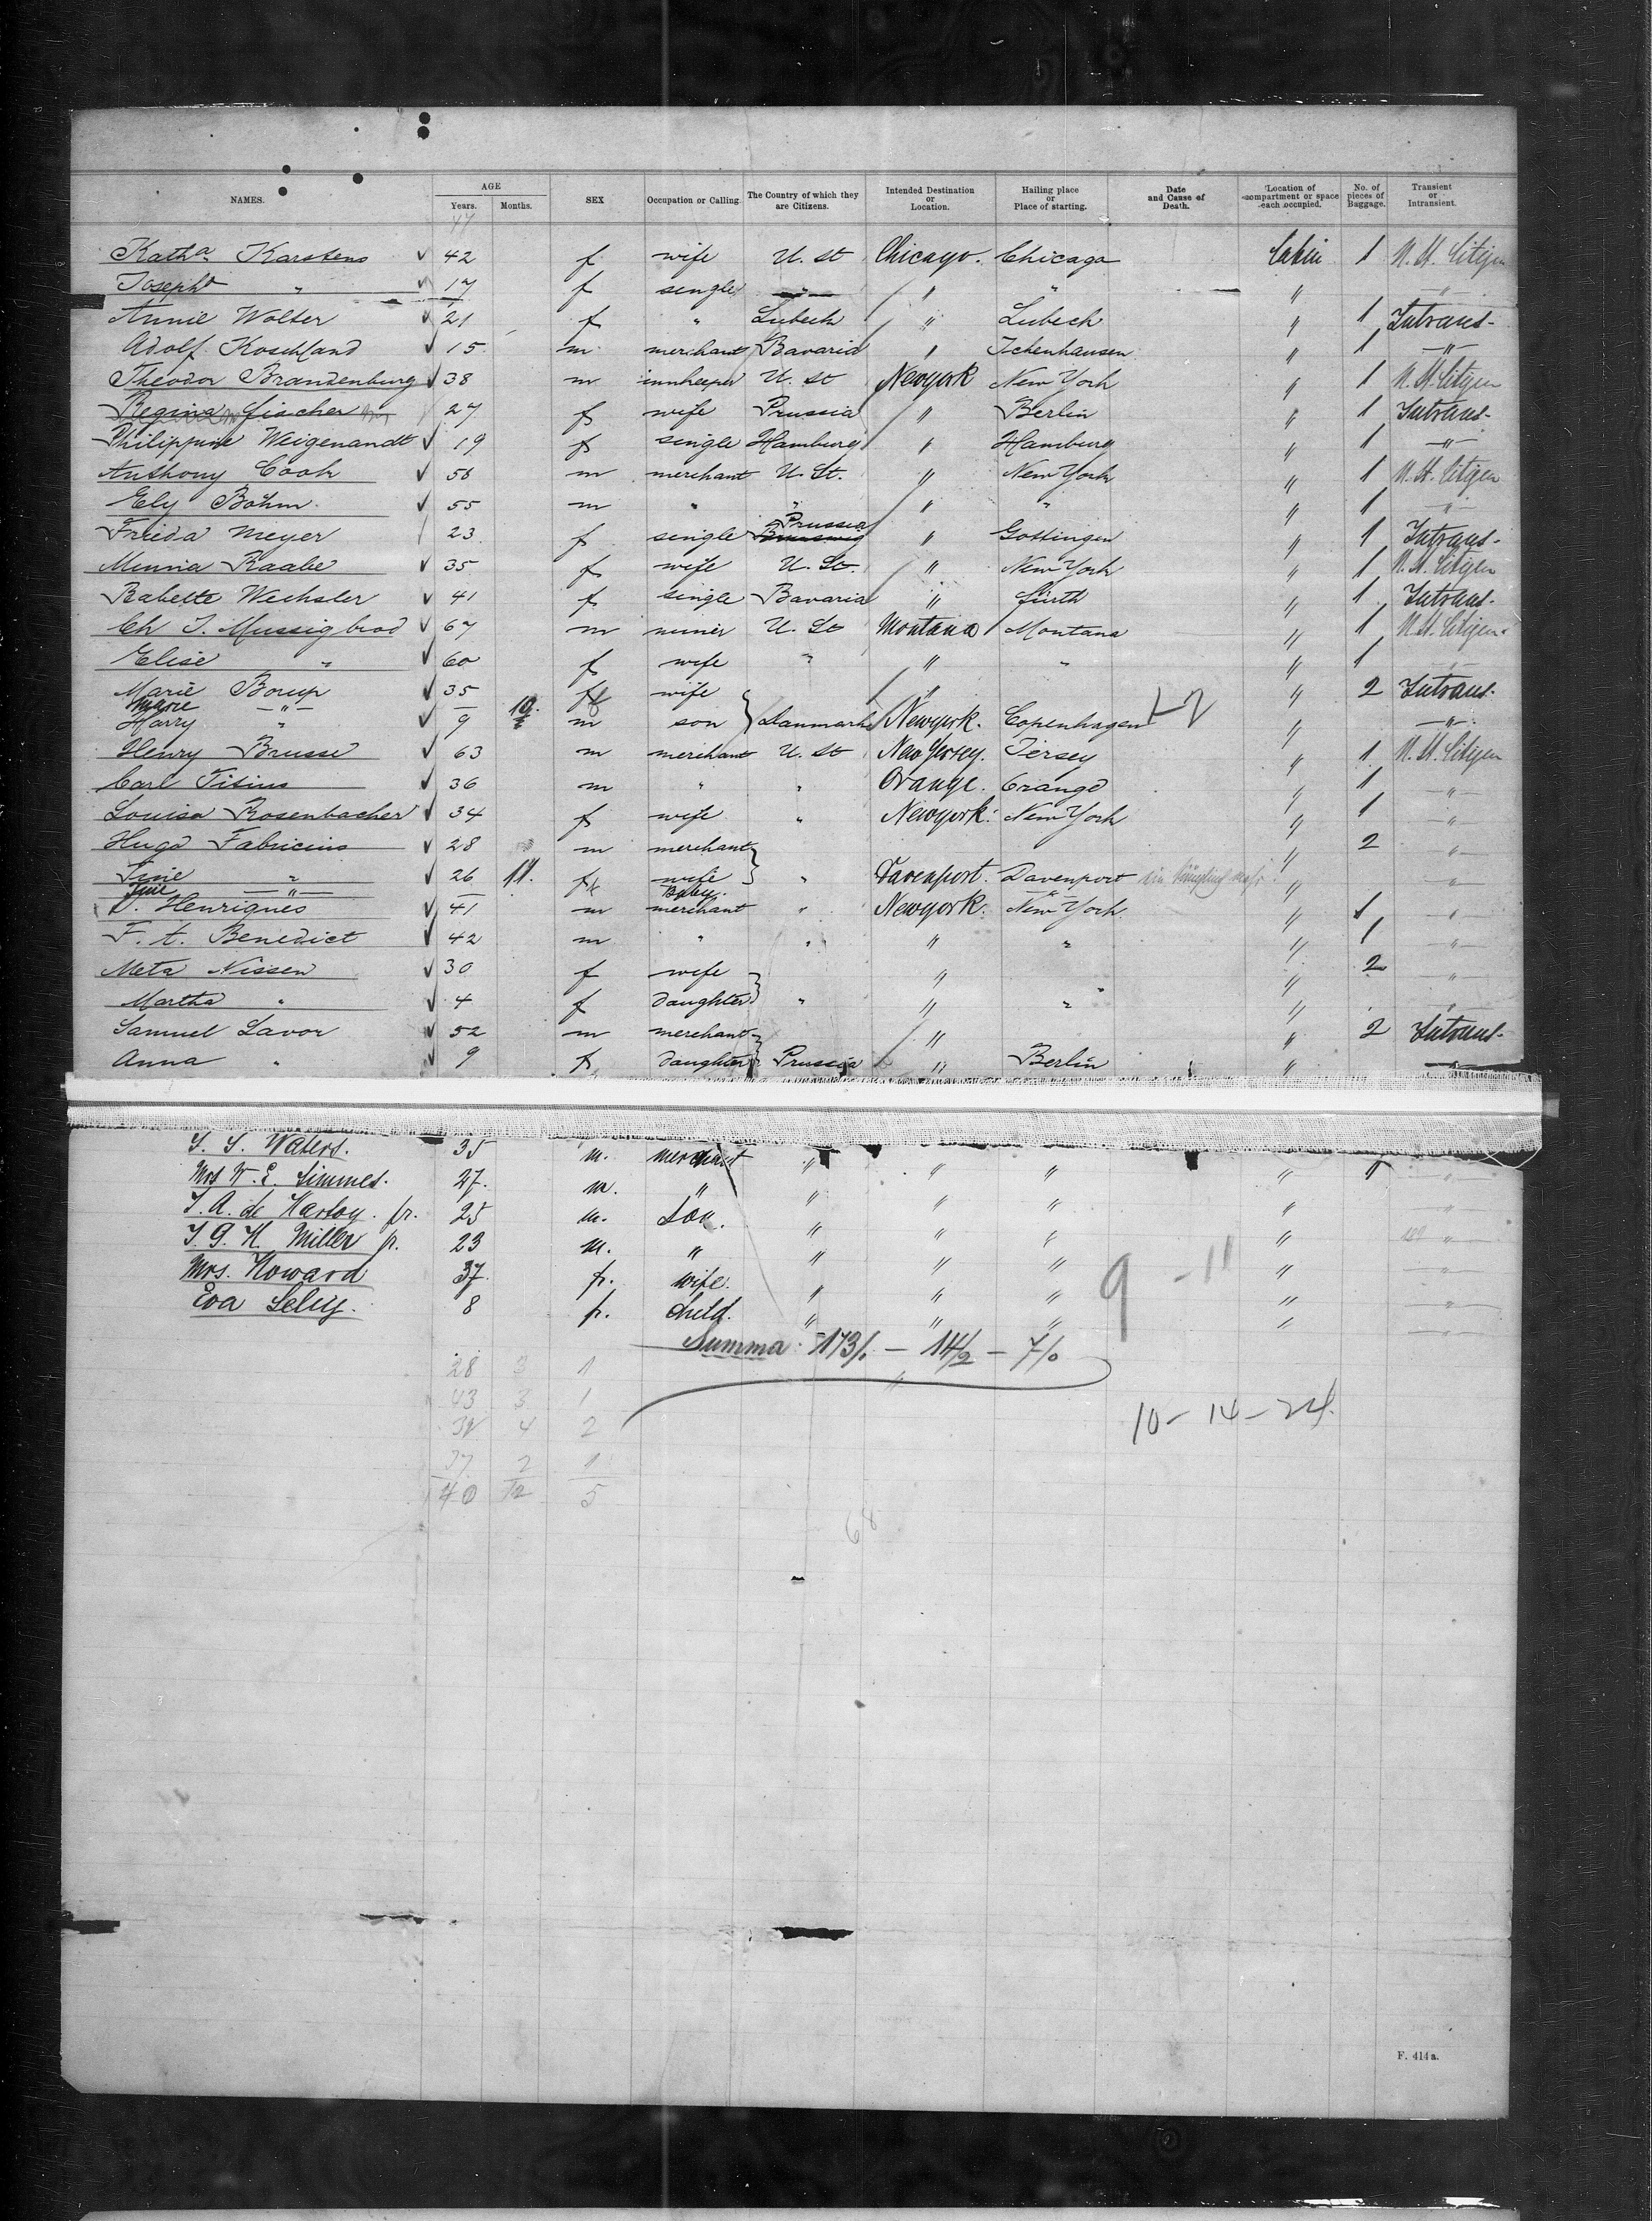 NAMES. AGE Years. Months. SEX Occupation or Calling. The Country of which they are Citizens. Intended Destination or Location. Hailing place or Place of starting. Date and Cause of Death. Location of compartment or space each occupied. No. of pieces of Baggage. Transient or Intransient.
Kath^a Karstens ✓ 42 f wife U. St Chicago. Chicago Cabin 1 U. St. Citizen
Joseph^a " ✓ 17 f single " " " "
Annie Wolter ✓ 21 f " Lubeck " Lubeck " 1 Intrans-
Adolf Koschland ✓ 15 m merchant Bavaria " Ichenhausen " 1 -"-
Theodor Brandenburg ✓ 38 m innkeeper U. St Newyork New York " 1 U. St. Citizen
Regina Fischer 27 f wife Prussia " Berlin " 1 Intrans-
Philippine Weigenandt ✓ 19 f single Hamburg " Hamburg " 1 -"-
Anthony Cook ✓ 56 m merchant U. St. " New York " 1 U. St. Citizen
Ely Böhm ✓ 55 m " " " " " 1 "
Frieda Meyer 23 f single Prussia " Gottingen " 1 Intrans-
Minna Raabe ✓ 35 f wife U. St. " New York " 1 U. St. Citizen
Babette Wechsler ✓ 41 f single Bavaria " Fürth " 1 Intrans-
Ch J. Mussigbrod ✓ 67 m miner U. St Montana Montana " 1 U. St. Citizen
Elise " ✓ 60 f wife " " " " 1
Marie Borup ✓ 35 f wife " " 2 Intrans-
Marie -"- 10.
Harry " ✓ 9 m son Danmark Newyork. Copenhagen " -"-
Henry Brusse ✓ 63 m merchant U. St New Yersey. Jersey " 1 U. St. Citizen
Carl Tisius ✓ 36 m " " Orange. Orange " 1 "
Louisa Rosenbacher ✓ 34 f wife " Newyork. New York " 1 "
Hugo Fabricius ✓ 28 m merchant " 2 "
Tine " ✓ 26 11. f wife " Davenport. Davenport " "
Tine -"- Baby.
D. Henriques ✓ 41 m merchant " Newyork. New York " 1 "
F. A. Benedict ✓ 42 m " " " " " 1 "
Meta Nissen ✓ 30 f wife " " 2 "
Martha " ✓ 4 f daughter " " " " "
Samuel Lavor ✓ 52 m merchant " " 2 Intrans-
Anna " ✓ 9 f daughter Prussia " Berlin "
J. S. Waters. 35 m. merchant " " " " " "
Mrs W. E. Simmes. 27. m. " " " " " "
J. A. de Hartog. jr. 25 m. Son. " " " " "
J. G. H. Miller jr. 23 m. " " " " " "
Mrs. Howard 37. f. wife. " " " " "
Eva Selig. 8 f. child. " " " " "
9 - 11
Summa: 173/1 - 14/2 - 7/0
28 3 1
43 3 1
32 4 2
10-14-24.
37 2 1
40 12 5
68
F. 414 a.